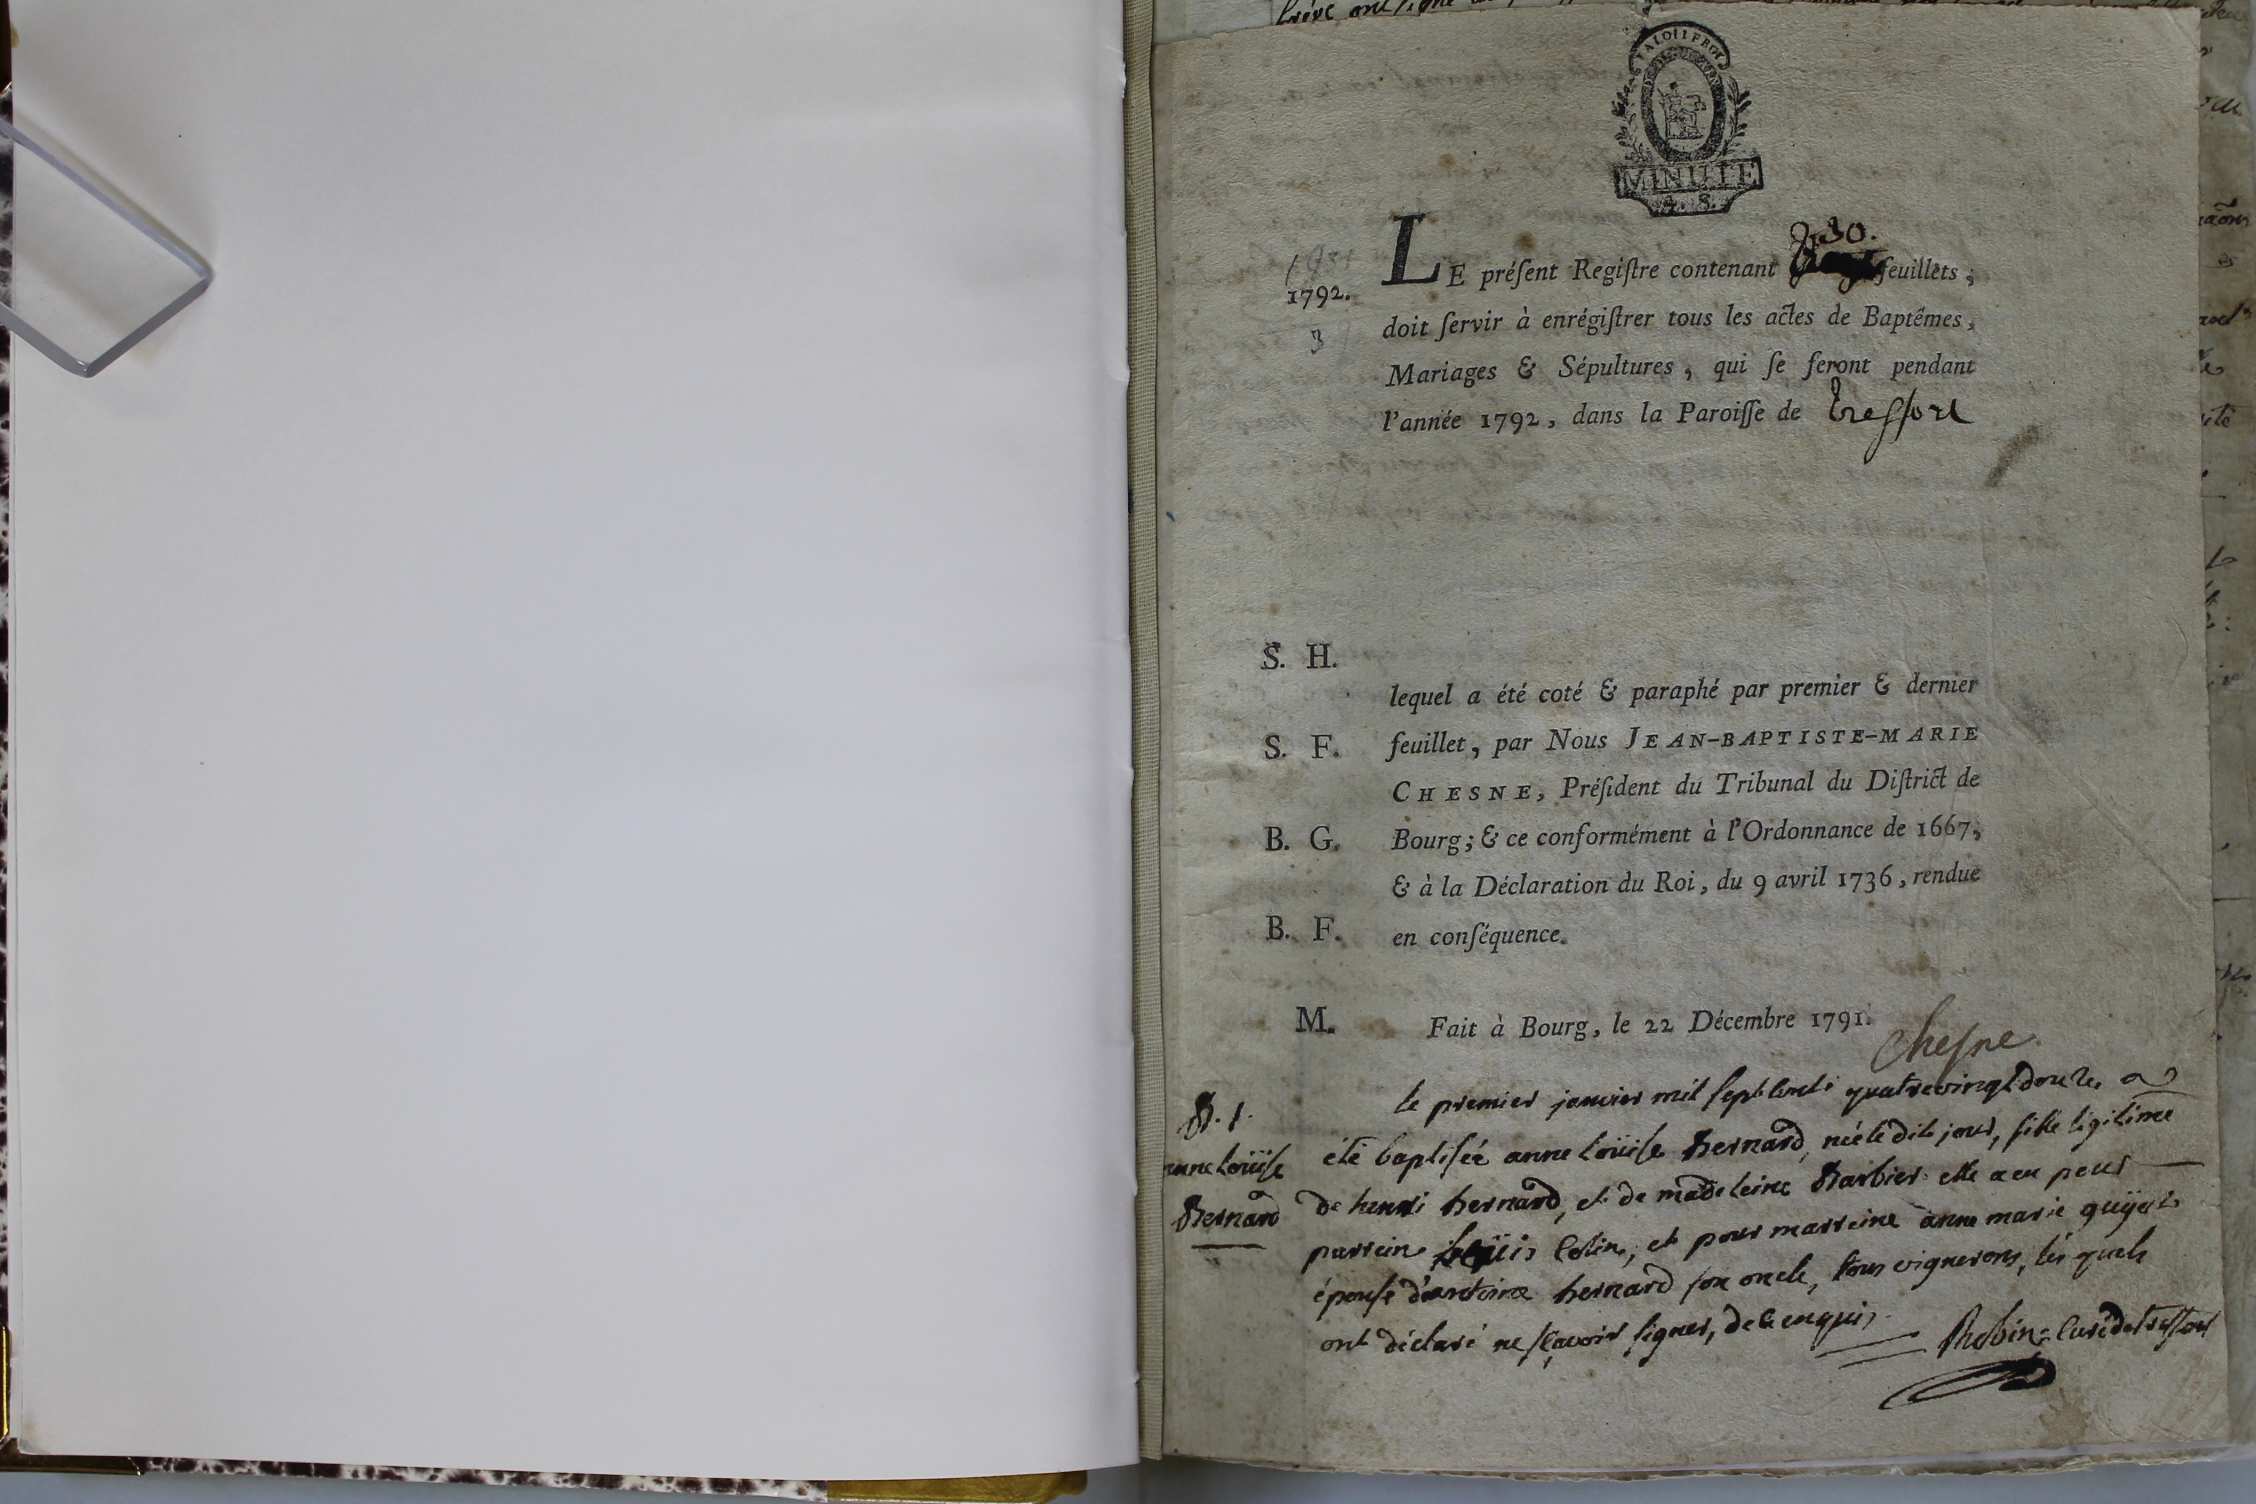 LA LOI LE ROI
MINUTE
1791
1792.
3
30.
LE préſent Regiſtre contenant feuillets,
doit ſervir à enrégiſtrer tous les actes de Baptêmes,
Mariages & Sépultures, qui ſe feront pendant
l'année 1792, dans la Paroiſſe de treffort
S. H.
lequel a été coté & paraphé par premier & dernier
S. F. feuillet, par Nous JEAN-BAPTISTE-MARIE
CHESNE, Préſident du Tribunal du Diſtrict de
B. G. Bourg; & ce conformément à l'Ordonnance de 1667,
& à la Déclaration du Roi, du 9 avril 1736, rendue
B. F. en conſéquence.
M. Fait à Bourg, le 22 Décembre 1791.
Cheſne
B. 1.
anne loüiſe
Bernard
le premier janvier mil ſept cents quatrevingt douze, a
été baptiſée anne loüiſe Bernard, née le dit jour, fille légitime
de henri bernard, et de madeleine Barbier elle a eu pour
parrein loüis Colin, et pour marreine anne marie guÿet
épouſe d'antoine bernard ſon oncle, tous vignerons, les quels
ont déclaré ne ſçavoir ſigner, de ce enquis
Robin curé de treffort